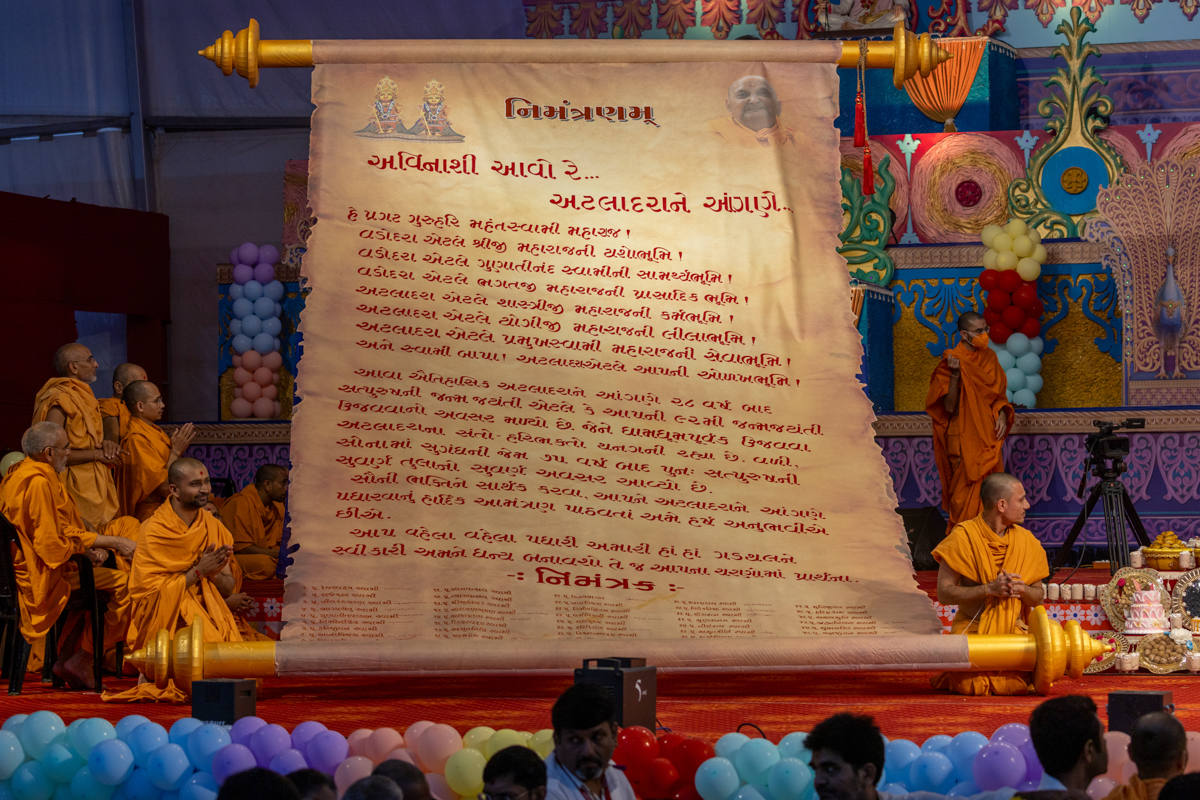 નિમંત્રણમ્
અવિનાશી આવો રે...
અટલાદરાને આંગણે...
હે પ્રગટ ગુરુહરિ મહંતસ્વામી મહારાજ !
વડોદરા એટલે શ્રીજી મહારાજની યશોભૂમિ !
વડોદરા એટલે ગુણાતીતાનંદ સ્વામીની સામર્થ્યભૂમિ !
વડોદરા એટલે ભગતજી મહારાજની પ્રાસાદિક ભૂમિ !
અટલાદરા એટલે શાસ્ત્રીજી મહારાજની કર્મભૂમિ !
અટલાદરા એટલે યોગીજી મહારાજની લીલાભૂમિ !
અટલાદરા એટલે પ્રમુખસ્વામી મહારાજની સેવાભૂમિ !
અને સ્વામી બાપા! અટલાદરાએટલે આપની ઓળખભૂમિ !
આવા ઐતિહાસિક અટલાદરાને આંગણે ૨૮ વર્ષ બાદ
સત્પુરુષની જન્મ જયંતી એટલે કે આપની ૯૨મી જન્મજયંતી
ઉજવવાનો અવસર મળ્યો છે. જેને ધામધૂમપૂર્વક ઉજવવા
અટલાદરાના સંતો- હરિભક્તો થનગની રહ્યા છે. વળી,
સોનામાં સુગંધની જેમ ૭૫ વર્ષ બાદ પુનઃ સત્પુરુષની
સુવર્ણ તુલાનો સુવર્ણ અવસર આવ્યો છે.
સૌની ભક્તિને સાર્થક કરવા, આપને અટલાદરાને આંગણે
પધારવાનું હાર્દિક આમંત્રણ પાઠવતાં અમે હર્ષ અનુભવીએ
છીએ.
આપ વહેલા વહેલા પધારી અમારી હાં હાં ગડથલને
સ્વીકારી અમને ધન્ય બનાવશો તે જ આપના ચરણોમાં પ્રાર્થના.
-: નિમંત્રક :-